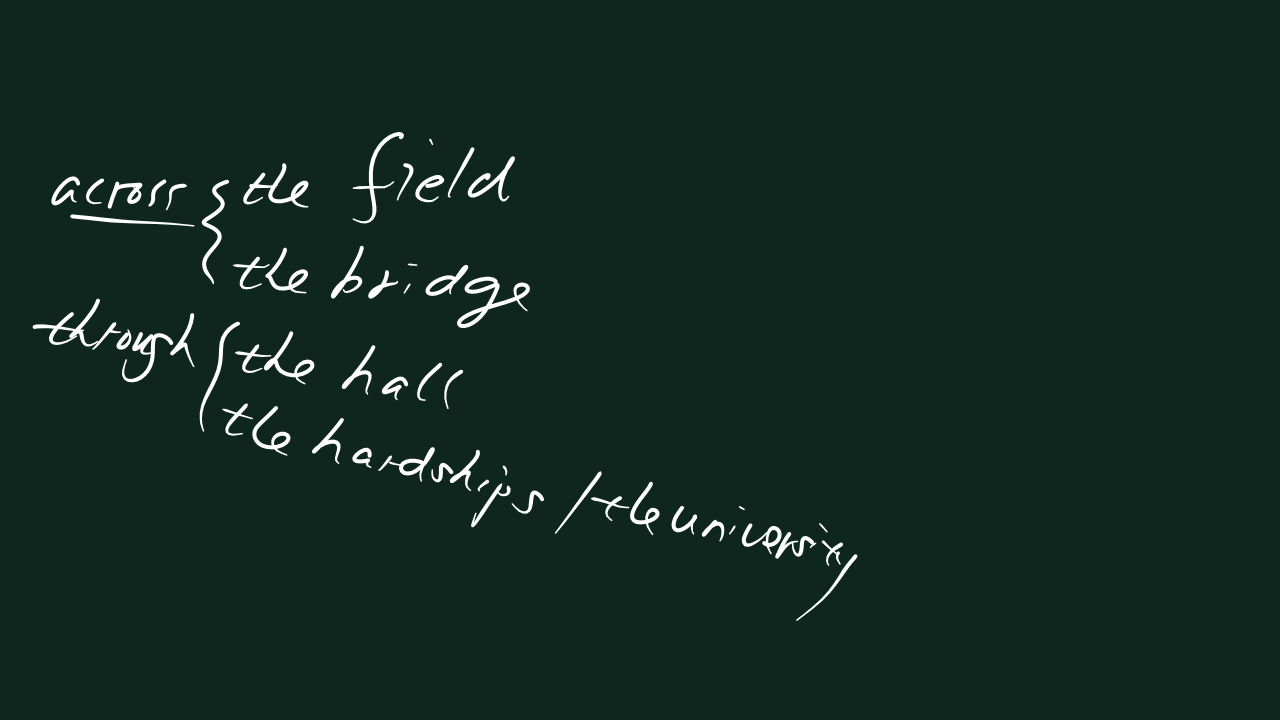 across { the field
the bridge
through { the hall
the hardships / the university